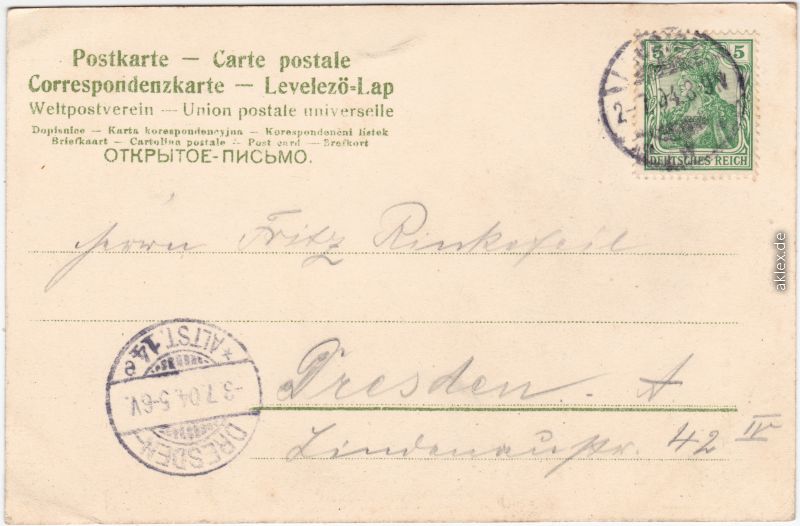 Postkarte — Carte postale
Correspondenzkarte — Levelező-Lap
Weltpostverein — Union postale universelle
Dopisnice — Karta korespondencyjna — Korespondenční lístek
Briefkaart — Cartolina postale — Post card — Brefkort
ОТКРЫТОЕ-ПИСЬМО.
5 5
DEUTSCHES REICH
Herrn Fritz
Dresden. A
Lindenaustr. 42 IV
* ALTST. 14 e
-3.7.04.5-6V.
DRESDEN
aklex.de